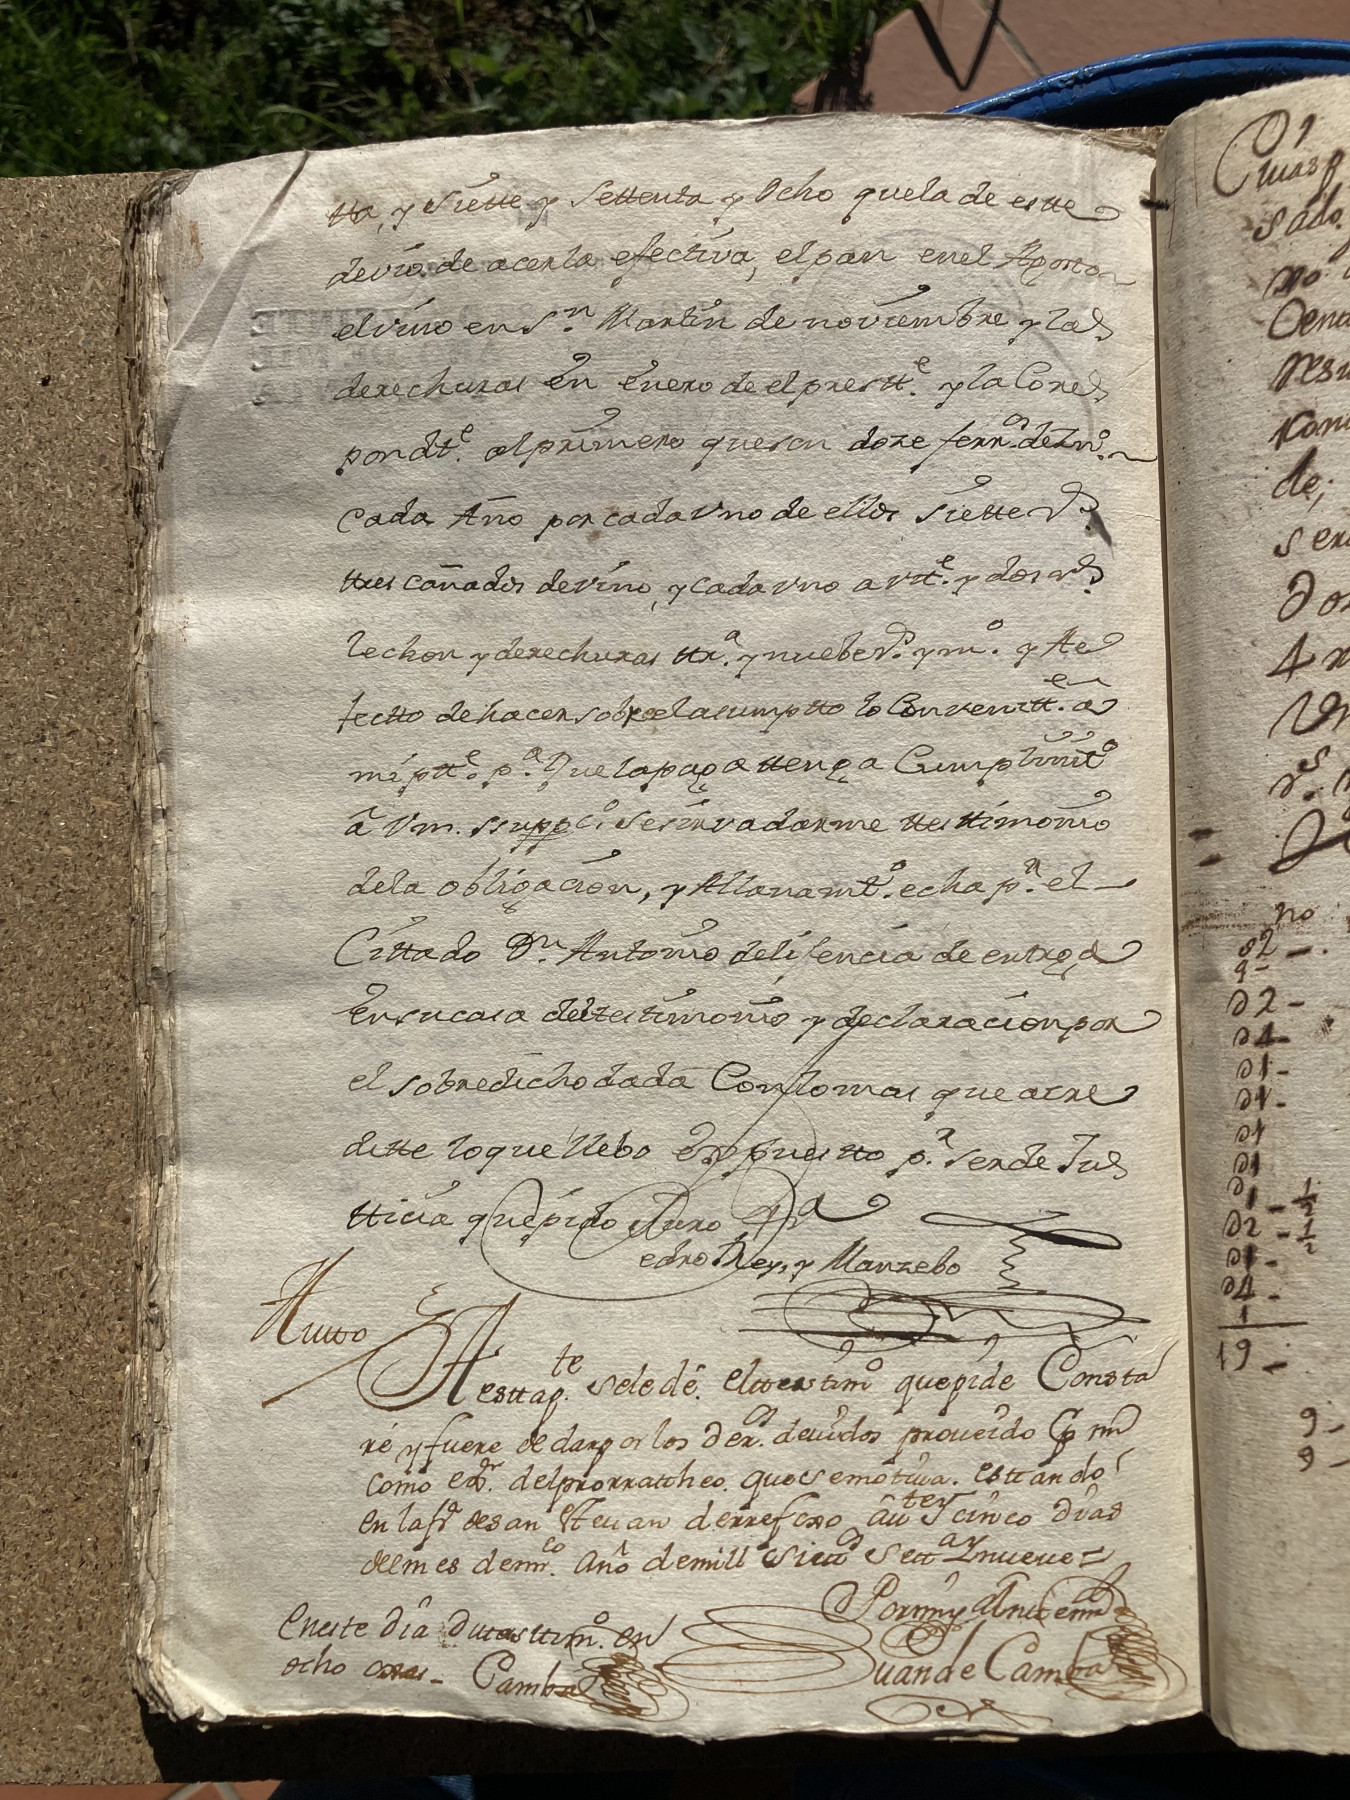 tta, y siette y settenta y Ocho quela de estte
devió de acerla efectiva, el pan en el Agosto
el vino en Sn. Martin de noviembre y las
derechuras en enero de el prestte. y la Cores
pondte. al primero que son doze ferros. de zno.
cada Año por cada vno de ellos siette rs.
ttres cañados de vino, y cada vno a vtte. y dos rs.
lechon y derechuras ttra. y nuebe rs. y mo. y Ae
fectto de hacer sobre el asumptto lo Convenitte. a
mi ptte. pa. Que la paga ttenga Cumplimto.
â Vm. suppco. se sirva darme ttesttimonio
dela obligación, y Allanamto. echa pr. el
Cittado Dn. Antonio delifencia de entrega
En su casa de testimonio y declaracion por
el sobredicho dada Con lo mas que acre
ditte lo que llebo Expuestto pa. ser de Jus
tticia que pido Juro Va
Pedro Rey, y Manzebo
Autto
A esttapte. sele dé. el ttesstimo que pide Consta
re y fuere de dar por los ders. deuidos proueido Por mi
como esno. del prorratheo. que se motiua. esttando
en la fra de san Esteuan
del mes de enro. Año de mill settos settta. y nueue
Por mi y Ante mi
Juan de Camba
En este dia di testtimo. en
ocho oxas - Camba
Cuias p
sado
no
de;
Do
4
no
82 -
9 -
02 -
04 -
01 -
01 -
01
01
01 - 1/2
02 - 1/2
01 -
04 -
1
19 -
9 -
9 -